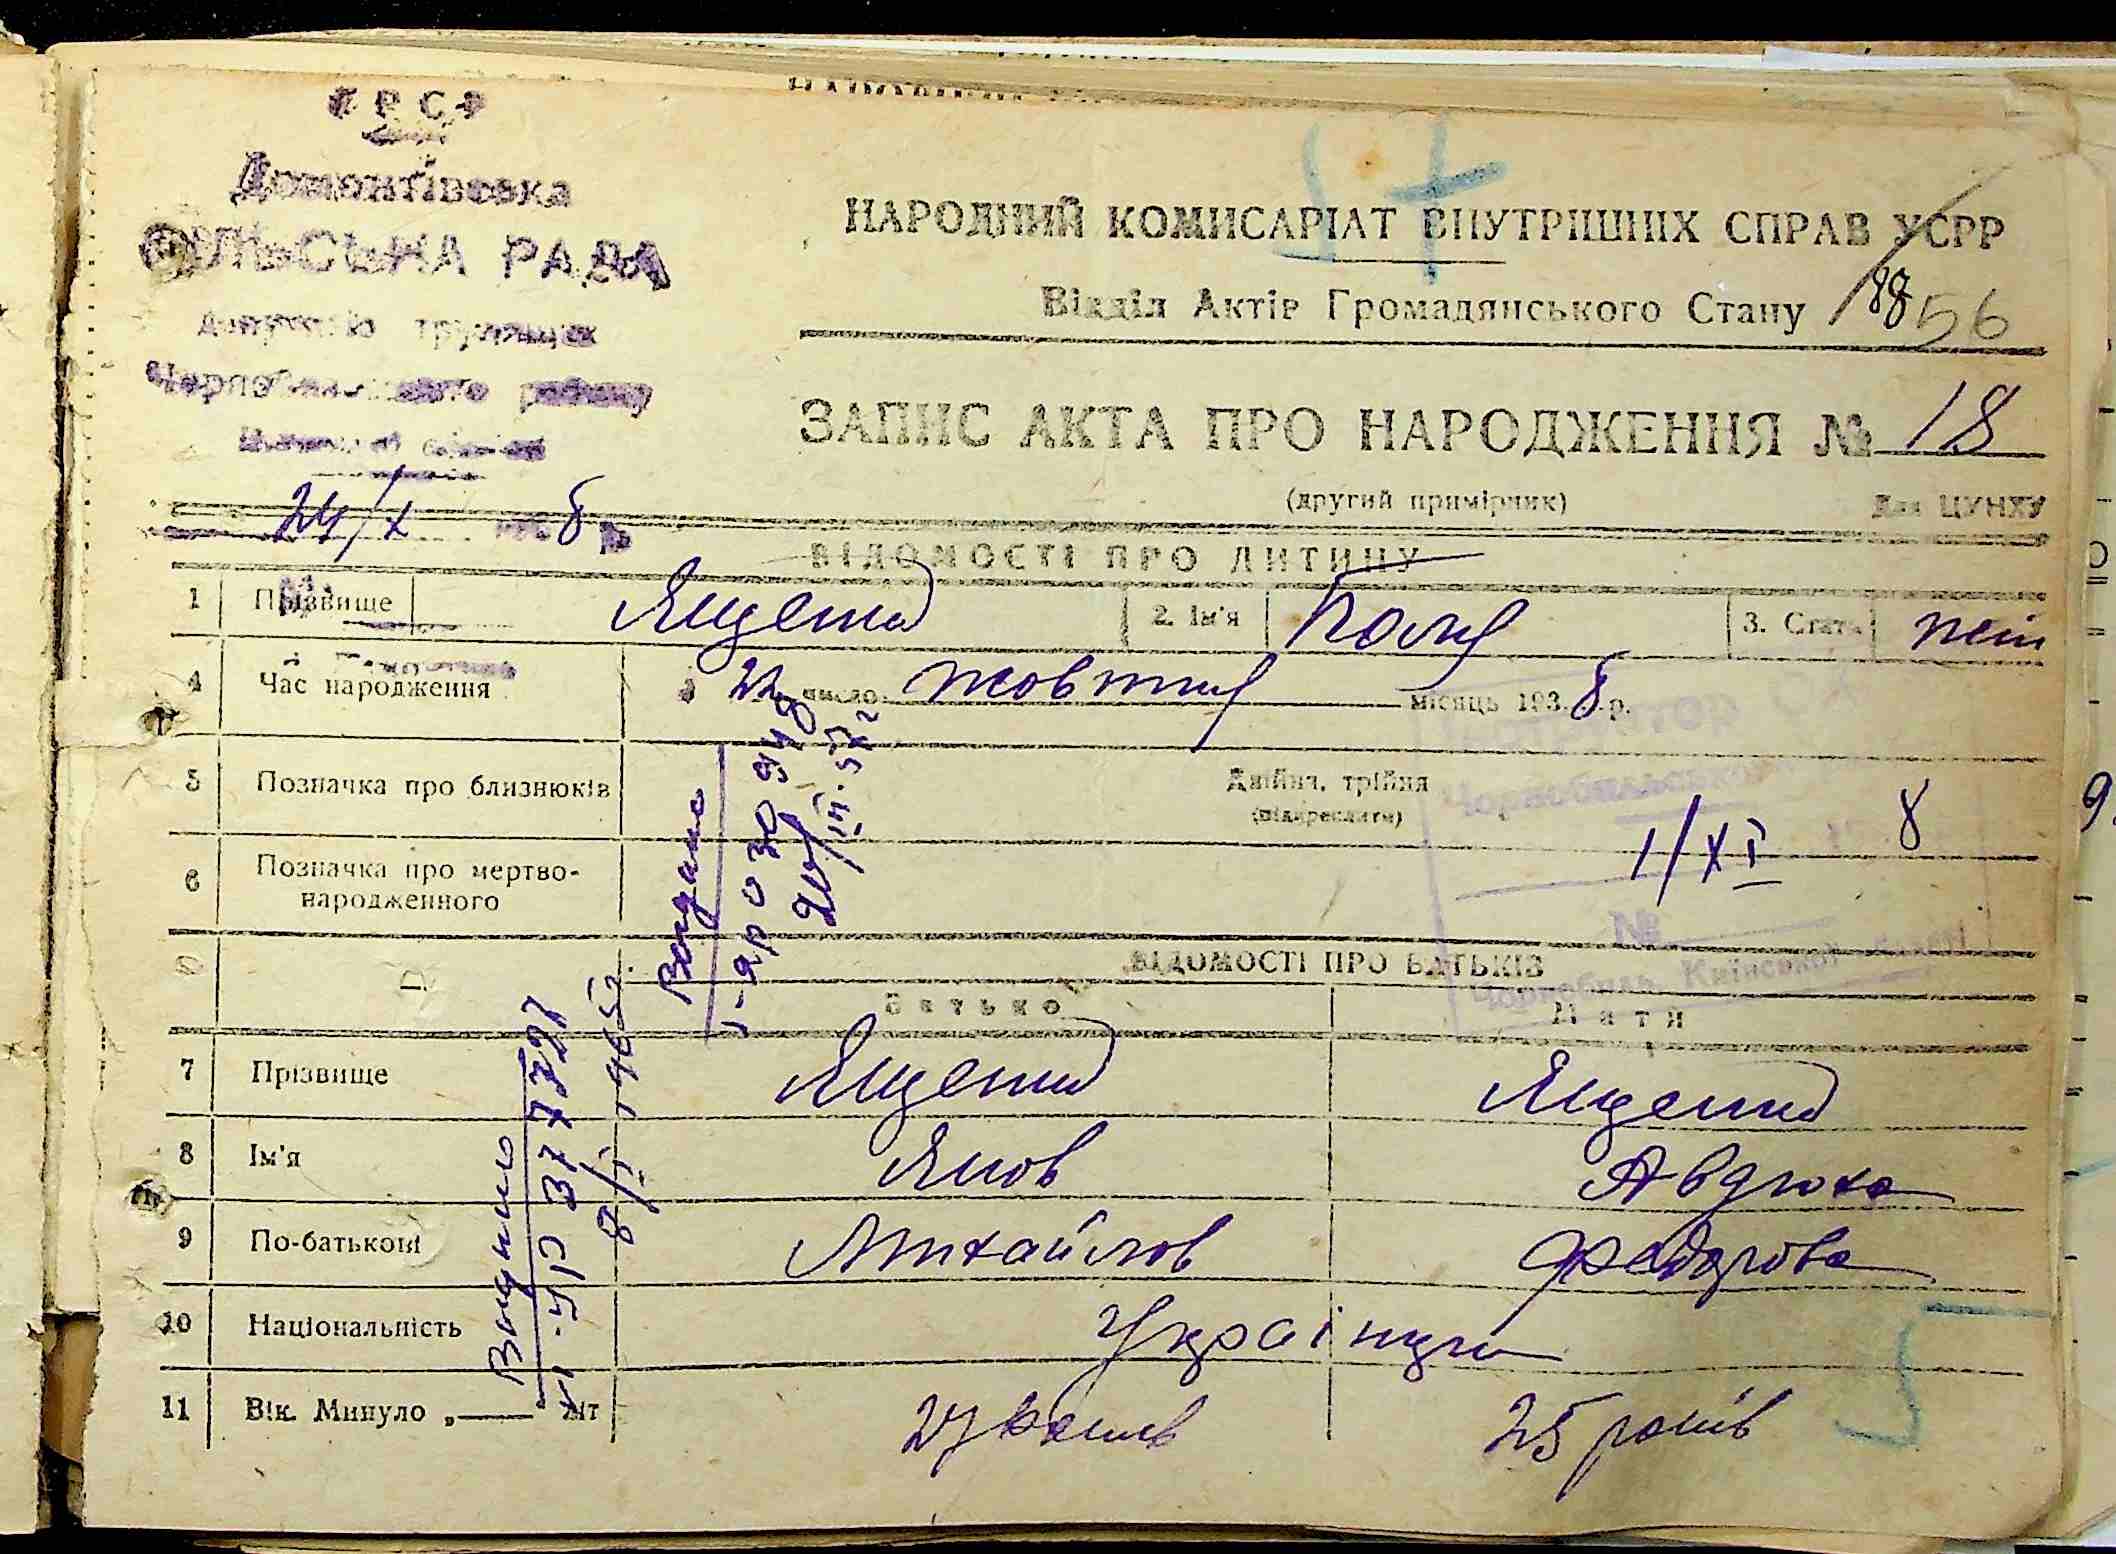 УРСР
Домонтівська
СІЛЬСЬКА РАДА
депутатів трудящих
Чорнобильського району
Київської області
24/X 1938 р.
НАРОДНИЙ КОМИСАРІАТ ВНУТРІШНІХ СПРАВ УСРР
Відділ Актів Громадянського Стану 188 56
ЗАПИС АКТА ПРО НАРОДЖЕННЯ № 18
(другий примірник) Для ЦУНХУ
ВІДОМОСТІ ПРО ДИТИНУ
1 Прізвище Ященко 2. Ім'я Поля 3. Стать жін
4 Час народження 22 число жовтня місяць 1938 р.
5 Позначка про близнюків Двійня, трійня
(підкреслити)
6 Позначка про мертво-
народженного
Чорнобильського
1/XI 8
№
Чорнобиль, Київської області
ВІДОМОСТІ ПРО БАТЬКІВ
Батько Мати
7 Прізвище Ященко Ященко
8 Ім'я Яков Авдюха
9 По-батькові Михайлов Федорова
10 Національність Українці
11 Вік. Минуло „—— літ 27 років 25 років
Видано
20/III.57г
Видано
8/I 1965г